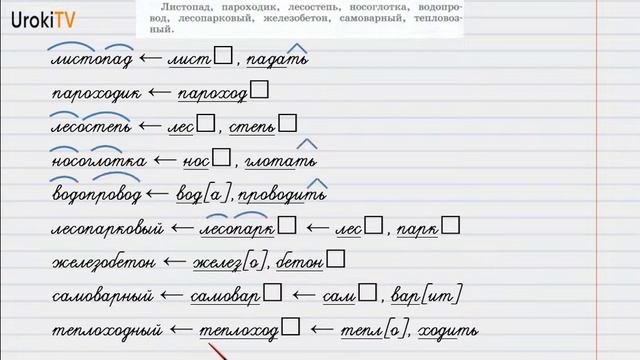 UrokiTV
Листопад, пароходик, лесостепь, носоглотка, водопро-
вод, лесопарковый, железобетон, самоварный, тепловоз-
ный.
листопад ← лист□, падать
пароходик ← пароход□
лесостепь ← лес□, степь□
носоглотка ← нос□, глотать
водопровод ← вод[а], проводить
лесопарковый ← лесопарк□ ← лес□, парк□
железобетон ← желез[о], бетон□
самоварный ← самовар□ ← сам□, вар[ит]
теплоходный ← теплоход□ ← тепл[о], ходить